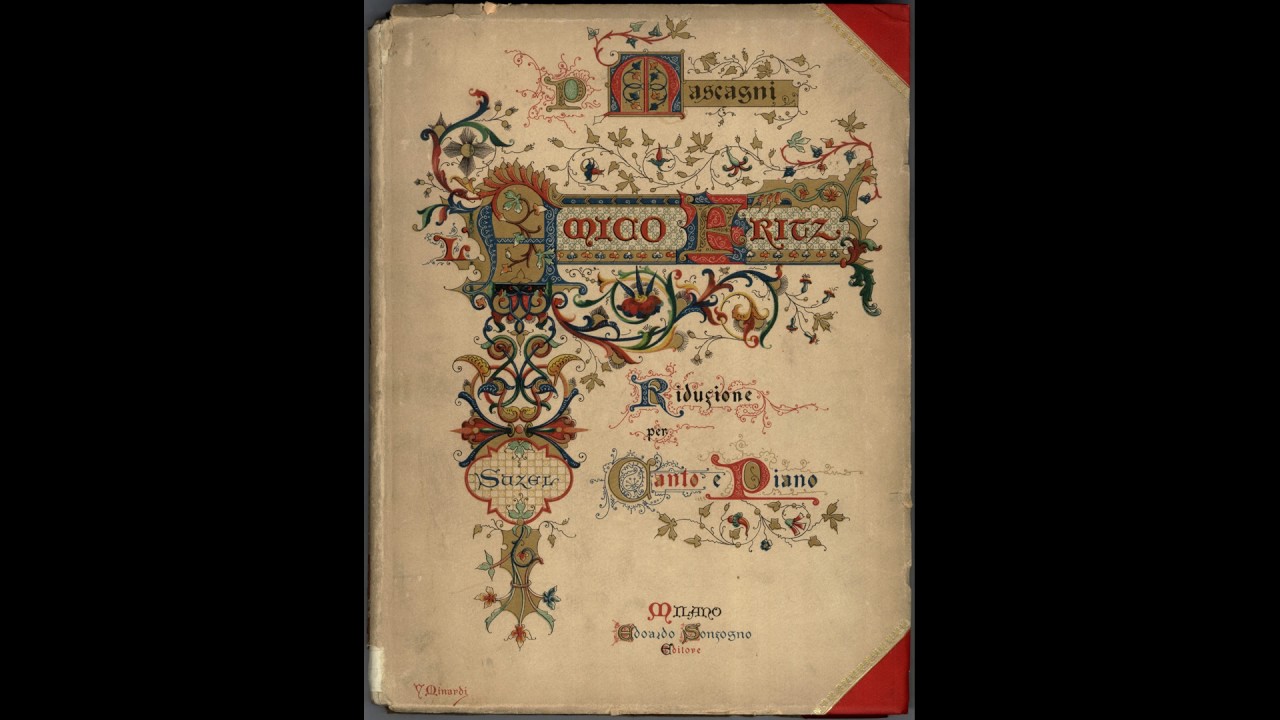 P Mascagni
L'Amico Fritz
Suzel
Riduzione
per
Canto e Piano
Milano
Edoardo Sonzogno
Editore
V. Minardi